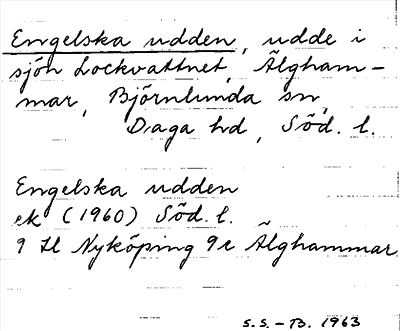 Engelska udden, udde i
sjön Lockvattnet, Älgham-
mar, Björnlunda sn,
Daga hd, Söd. l.
Engelska udden
ek (1960) Söd. l.
9 H Nyköping 9 c Älghammar
S.S.-B. 1963